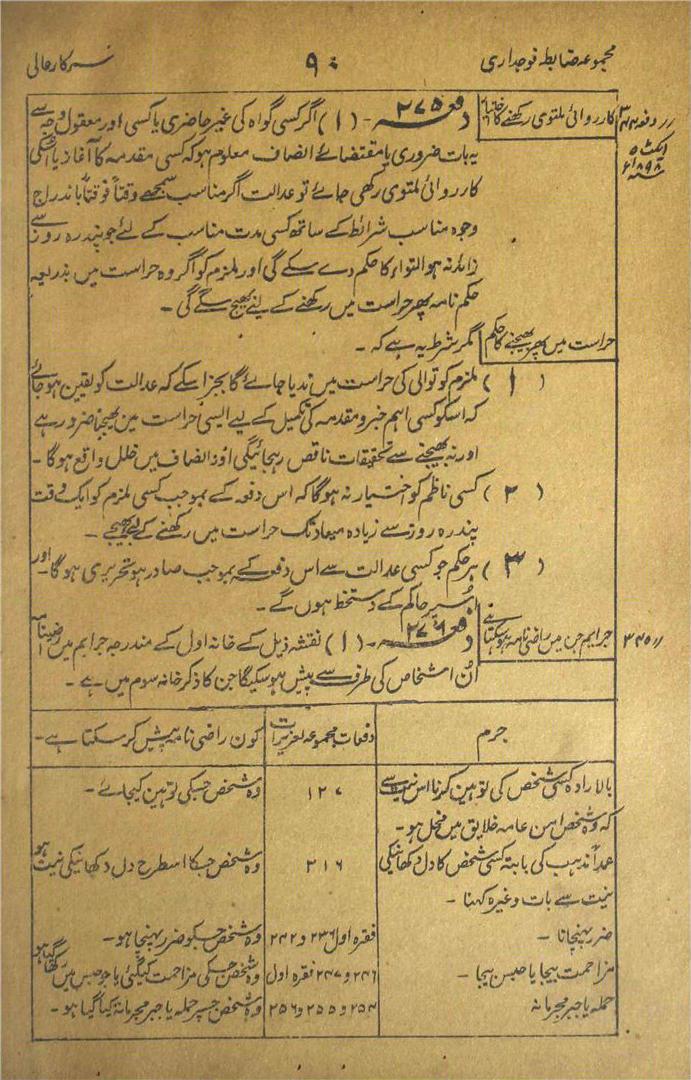 مجموعہ ضابطہ فوجداری
۹۰
سرکار عالی
کارروائی ملتوی رکھنے کا اختیار
ردفعہ ۳۴۴
ایکٹ ۵
۱۸۹۸ء
دفعہ ۲۷۵ ۔ (۱) اگر کسی گواہ کی غیر حاضری یا کسی اور معقول وجہ سے
یہ بات ضروری یا مقتضائے انصاف معلوم ہو کہ کسی مقدمہ کا آغاز یا اسکی
کارروائی ملتوی رکھی جائے تو عدالت اگر مناسب سمجھے وقتاً فوقتاً باندراج
وجوہ مناسب شرائط کے ساتھ کسی مدت مناسب کے لئے جو پندرہ روز سے
زائد نہ ہو التواء کا حکم دے سکے گی اور ملزم کو اگر وہ حراست میں بذریعہ
حکم نامہ پھر حراست میں رکھنے کے لئے بھیج سکے گی ۔
حراست میں پھر بھیجنے کا حکم
مگر شرط یہ ہے کہ ۔
(۱) ملزم کوتوالی کی حراست میں ندیا جائے گا بجز اسکے کہ عدالت کو یقین ہو جائے
کہ اسکو کسی اہم خبر و مقدمہ کی تکمیل کے لیے ایسی حراست میں بھیجنا ضرور ہے
اور نہ بھیجنے سے تحقیقات ناقص رہجائیگی اور انصاف میں خلل واقع ہوگا ۔
(۲) کسی ناظم کو اختیار نہ ہوگا کہ اس دفعہ کے بموجب کسی ملزم کو ایک وقت
پندرہ روز سے زیادہ میعاد تک حراست میں رکھنے کے لئے بھیجے ۔
(۳) ہر حکم جو کسی عدالت سے اس دفعہ کے بموجب صادر ہو تحریری ہوگا ۔ اور
اسپر حاکم کے دستخط ہوں گے ۔
جرایم جن میں راضی نامہ ہوسکتا ہے
〃 ۳۴۵
دفعہ ۲۷۶ ۔ (۱) نقشہ ذیل کے خانہ اول کے مندرجہ جرایم میں راضینامہ
اُن اشخاص کی طرف سے پیش ہوسکیگا جن کا ذکر خانہ سوم میں ہے ۔
جرم
دفعات مجموعہ تعزیرات
کون راضی نامہ پیش کر سکتا ہے ۔
بالارادہ کسی شخص کی توہین کرنا اس نیت سے
۱۲۷
وہ شخص جسکی توہین کیجائے ۔
کہ وہ شخص امن عامہ خلایق میں مخل ہو ۔
عمداً مذہب کی بابتہ کسی شخص کا دل دکھانیکی
۲۱۶
وہ شخص جسکا اسطرح دل دکھانیکی نیت ہو
نیت سے بات وغیرہ کہنا ۔
ضرر پہنچانا ۔
فقرہ اول ۲۳۶ و ۲۴۲
وہ شخص جسکو ضرر پہنچا ہو ۔
مزاحمت بیجا یا حبس بیجا ۔
۲۴۶ و ۲۴۷ فقرہ اول
وہ شخص جسکی مزاحمت کیگئی یا جو حبس میں رکھا گیا ہو
حملہ یا جبر مجرمانہ
۲۵۴ و ۲۵۵ و ۲۵۶
وہ شخص جسپر حملہ یا جبر مجرمانہ کیا گیا ہو ۔